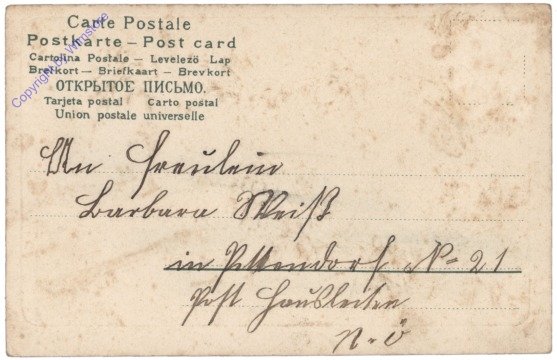 Carte Postale
Postkarte – Post card
Cartolina Postale – Levelező Lap
Brefkort – Briefkaart – Brevkort
ОТКРЫТОЕ ПИСЬМО.
Tarjeta postal Carto postal
Union postale universelle
An Fräulein
Barbara Weiß
in Pettendorf No 21
Post Hausleiten
N-Ö